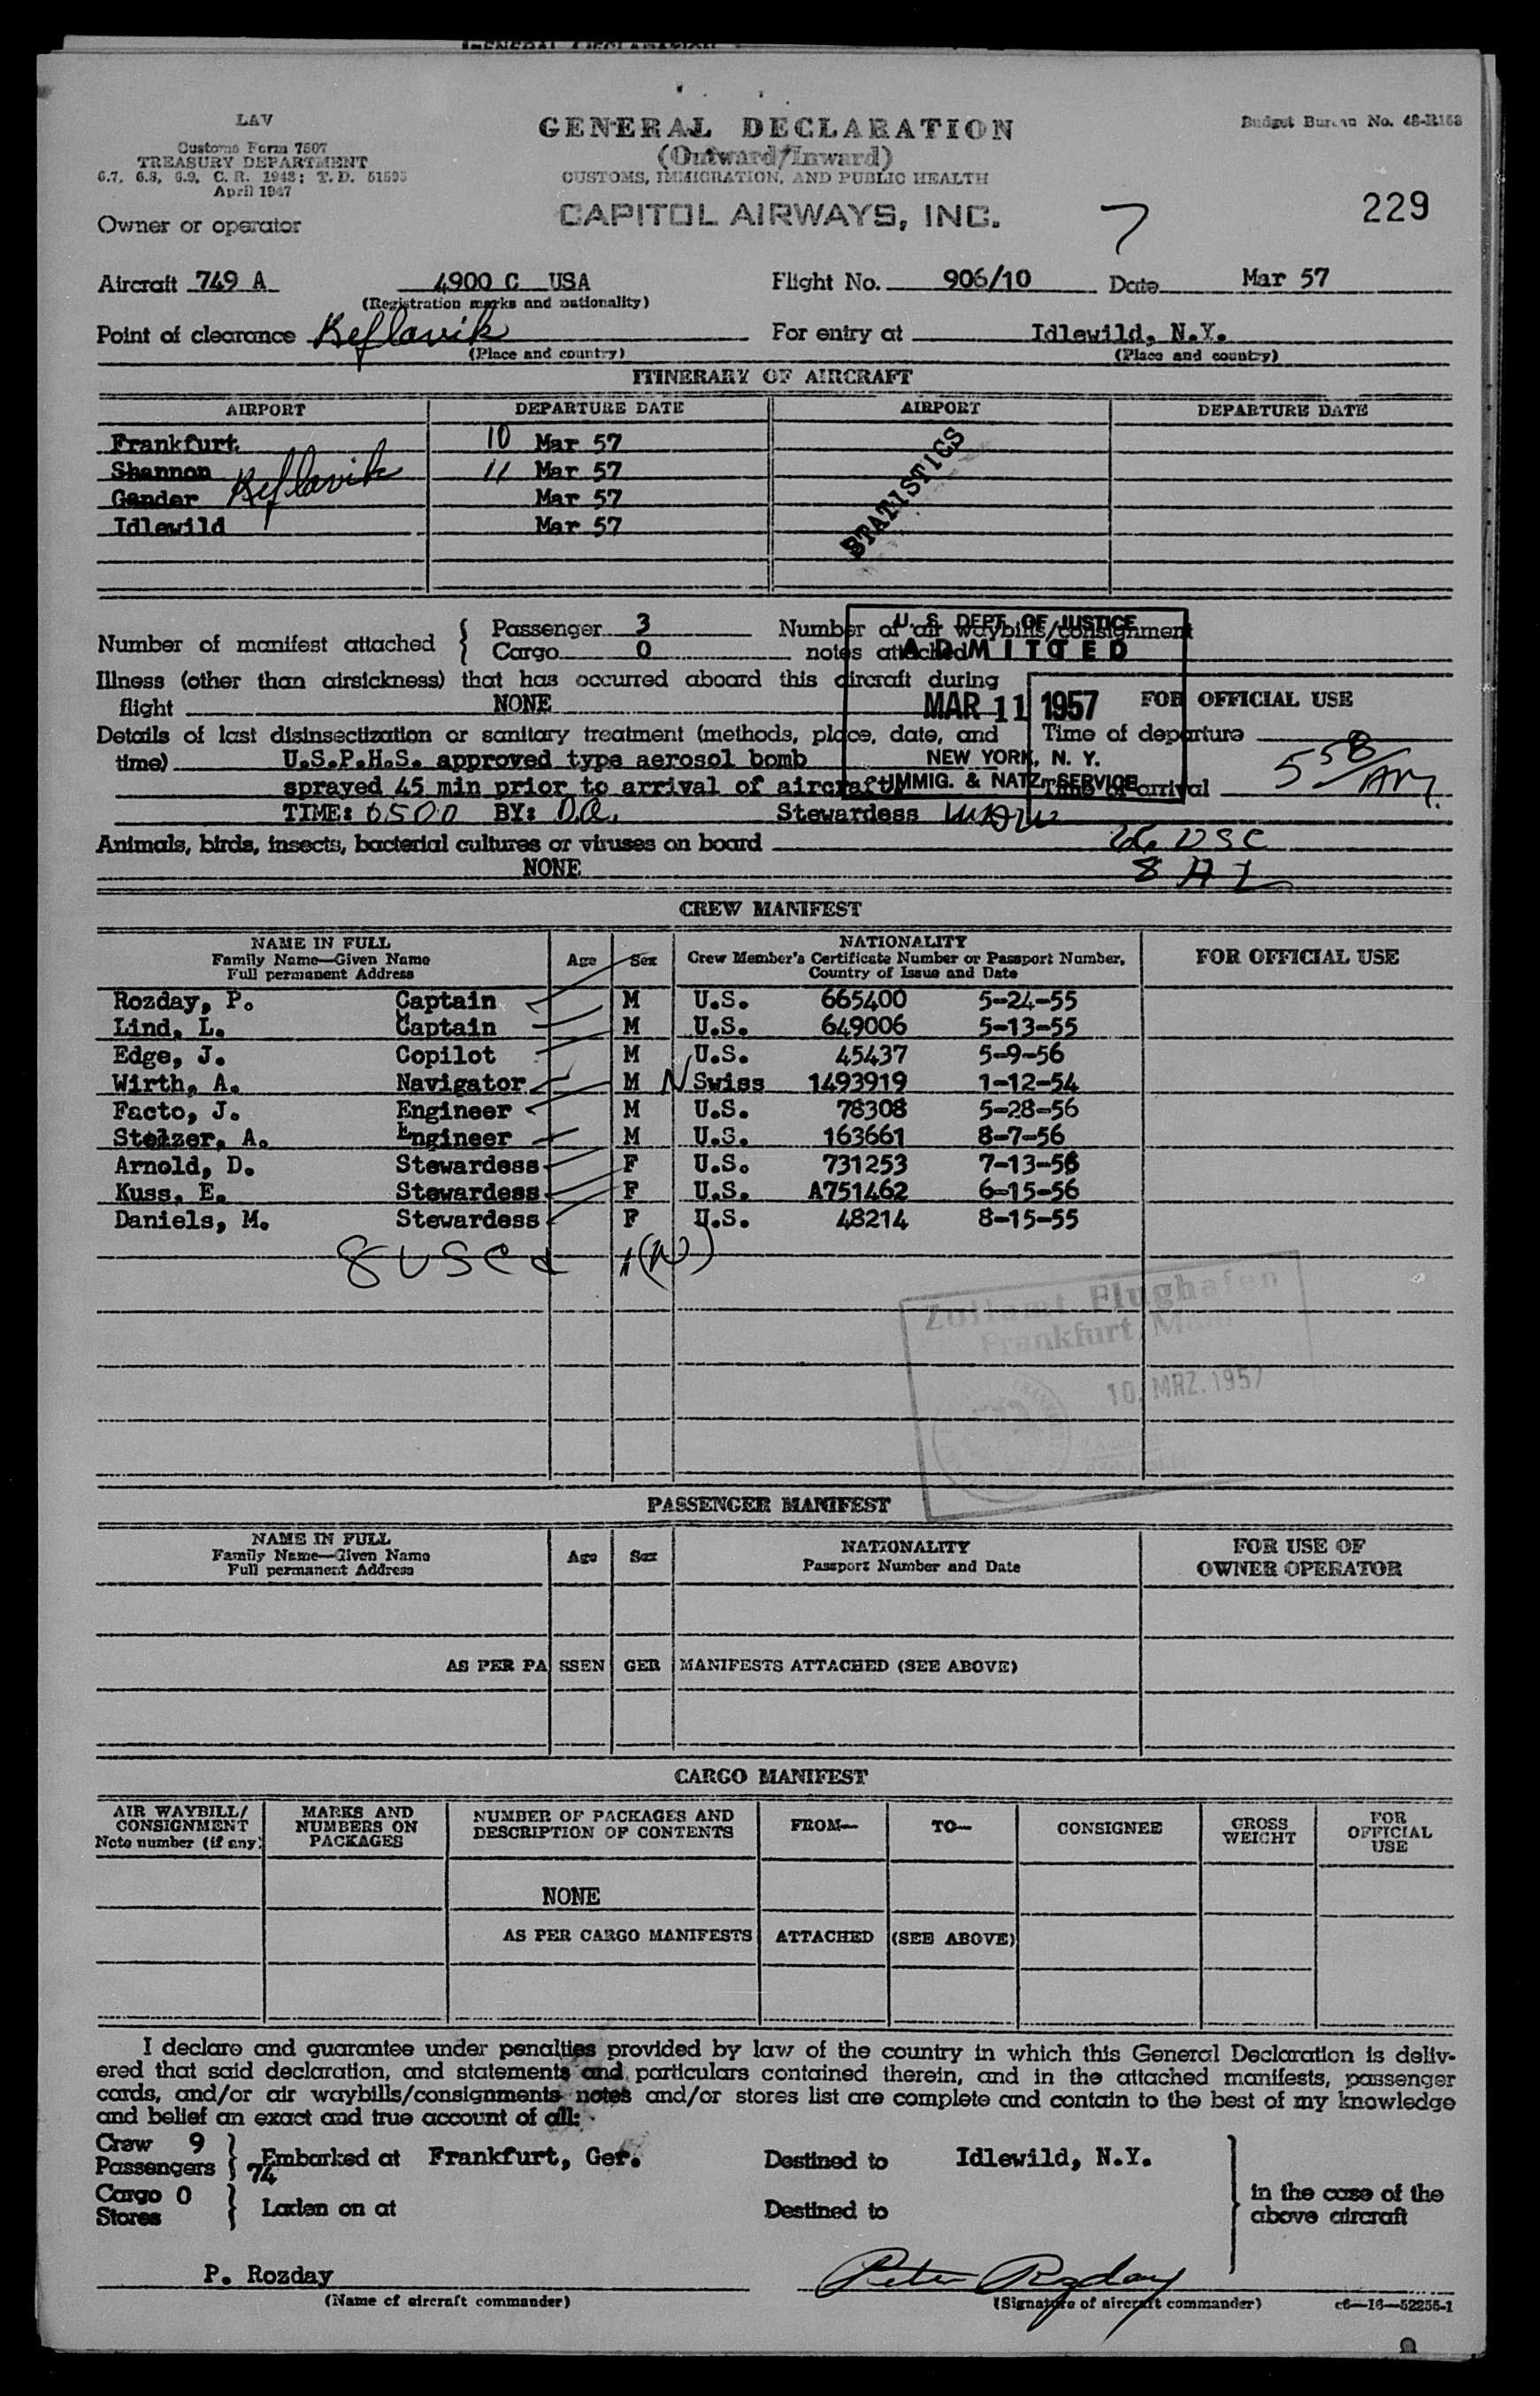 LAV
Customs Form 7507
TREASURY DEPARTMENT
6.7, 6.8, 6.9, C. R. 1943; T. D. 51595
April 1947
GENERAL DECLARATION
(Outward/Inward)
CUSTOMS, IMMIGRATION, AND PUBLIC HEALTH
Budget Bureau No. 48-R153
Owner or operator CAPITOL AIRWAYS, INC. 7 229
Aircraft 749 A 4900 C USA Flight No. 906/10 Date Mar 57
(Registration marks and nationality)
Point of clearance Keflavik For entry at Idlewild, N.Y.
(Place and country) (Place and country)
ITINERARY OF AIRCRAFT
AIRPORT DEPARTURE DATE AIRPORT DEPARTURE DATE
Frankfurt 10 Mar 57
Shannon Keflavik 11 Mar 57
Gander Mar 57
Idlewild Mar 57
STATISTICS
Number of manifest attached { Passenger 3 Number of air waybills/consignment
Cargo 0 notes attached
U. S. DEPT. OF JUSTICE
ADMITTED
MAR 11 1957
NEW YORK, N. Y.
IMMIG. & NATZ. SERVICE
Illness (other than airsickness) that has occurred aboard this aircraft during
flight NONE FOR OFFICIAL USE
Details of last disinsectization or sanitary treatment (methods, place, date, and Time of departure
time) U.S.P.H.S. approved type aerosol bomb
sprayed 45 min prior to arrival of aircraft. Time of arrival 558/AM.
TIME: 0500 BY: D.A. Stewardess
Animals, birds, insects, bacterial cultures or viruses on board 66 USC
NONE 8 AL
CREW MANIFEST
NAME IN FULL Age Sex NATIONALITY FOR OFFICIAL USE
Family Name—Given Name Crew Member's Certificate Number or Passport Number,
Full permanent Address Country of Issue and Date
Rozday, P. Captain M U.S. 665400 5-24-55
Lind, L. Captain M U.S. 649006 5-13-55
Edge, J. Copilot M U.S. 45437 5-9-56
Wirth, A. Navigator M N Swiss 1493919 1-12-54
Facto, J. Engineer M U.S. 78308 5-28-56
Stelzer, A. Engineer M U.S. 163661 8-7-56
Arnold, D. Stewardess F U.S. 731253 7-13-56
Kuss, E. Stewardess F U.S. A751462 6-15-56
Daniels, M. Stewardess F U.S. 48214 8-15-55
8 USC & 1(N)
Zollamt Flughafen
Frankfurt Main
10. MRZ. 1957
PASSENGER MANIFEST
NAME IN FULL Age Sex NATIONALITY FOR USE OF
Family Name—Given Name Passport Number and Date OWNER OPERATOR
Full permanent Address
AS PER PASSENGER MANIFESTS ATTACHED (SEE ABOVE)
CARGO MANIFEST
AIR WAYBILL/ MARKS AND NUMBER OF PACKAGES AND FROM— TO— CONSIGNEE GROSS FOR
CONSIGNMENT NUMBERS ON DESCRIPTION OF CONTENTS WEIGHT OFFICIAL
Note number (if any) PACKAGES USE
NONE
AS PER CARGO MANIFESTS ATTACHED (SEE ABOVE)
I declare and guarantee under penalties provided by law of the country in which this General Declaration is deliv-
ered that said declaration, and statements and particulars contained therein, and in the attached manifests, passenger
cards, and/or air waybills/consignments notes and/or stores list are complete and contain to the best of my knowledge
and belief an exact and true account of all:
Crew 9
Passengers 74 } Embarked at Frankfurt, Ger. Destined to Idlewild, N.Y.
Cargo 0
Stores } Laden on at Destined to
in the case of the
above aircraft
P. Rozday Peter Rozday
(Name of aircraft commander) (Signature of aircraft commander) c6—16—52255-1